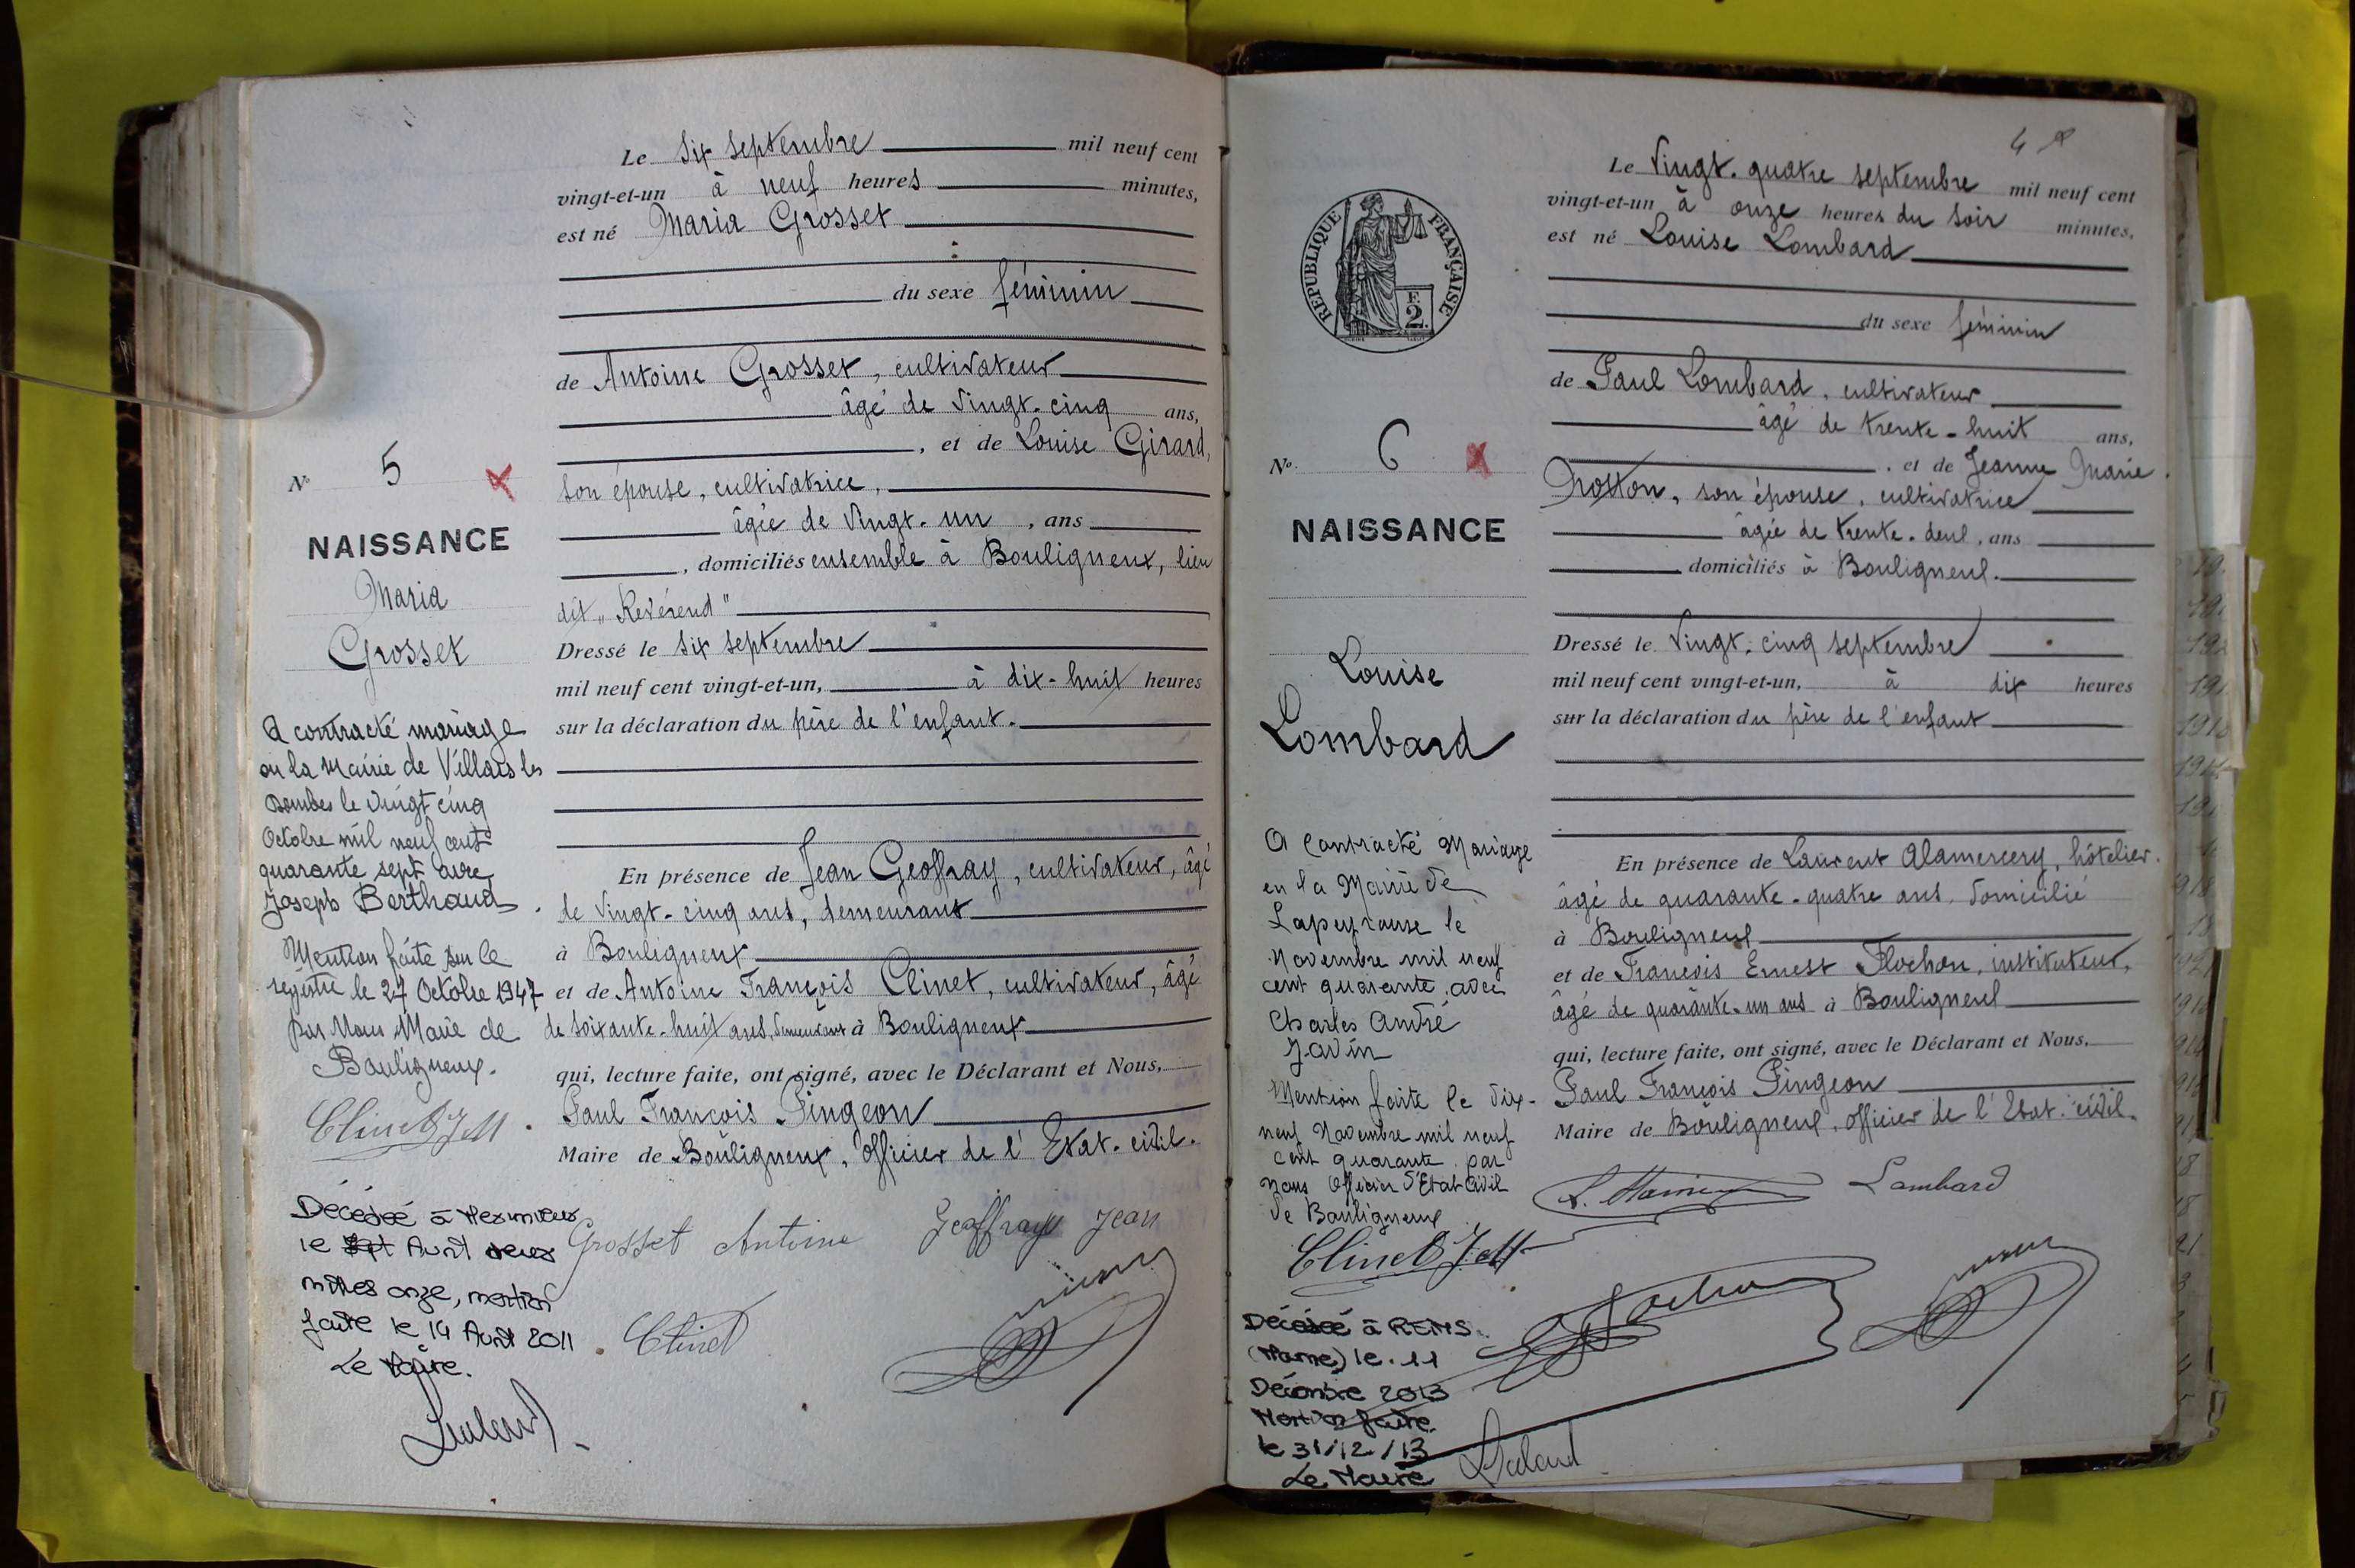 Le six septembre mil neuf cent
vingt-et-un à neuf heures minutes,
est né Maria Grosset
du sexe féminin
de Antoine Grosset, cultivateur
âgé de vingt-cinq ans,
, et de Louise Girard,
son épouse, cultivatrice,
âgée de vingt-un, ans
, domiciliés ensemble à Bouligneux, lieu
dit "Révérend"
Dressé le six septembre
mil neuf cent vingt-et-un, à dix-huit heures
sur la déclaration du père de l'enfant.
En présence de Jean Geoffray, cultivateur, âgé
de vingt-cinq ans, demeurant
à Bouligneux
et de Antoine François Clinet, cultivateur, âgé
de soixante-huit ans, demeurant à Bouligneux
qui, lecture faite, ont signé, avec le Déclarant et Nous,
Paul François Pingeon
Maire de Bouligneux, officier de l'Etat-civil.
Grosset Antoine Geoffray Jean
Clinet
No 5
NAISSANCE
Maria
Grosset
A contracté mariage
en la Mairie de Villars les
Dombes le vingt cinq
Octobre mil neuf cent
quarante sept avec
Joseph Berthaud.
Mention faite sur le
registre le 27 Octobre 1947
par Nous Maire de
Bouligneux.
Clinet JM.
Décédée à
le sept Avril deux
milles onze, mention
faite le 14 Avril 2011
Le Maire.
4
Le vingt-quatre septembre mil neuf cent
vingt-et-un à onze heures du soir minutes,
est né Louise Lombard
du sexe féminin
de Paul Lombard, cultivateur
âgé de trente-huit ans,
, et de Jeanne Marie
son épouse, cultivatrice
âgée de trente-deux, ans
domiciliés à Bouligneux.
Dressé le vingt-cinq septembre
mil neuf cent vingt-et-un, à dix heures
sur la déclaration du père de l'enfant
En présence de Laurent Alamercery, hôtelier,
âgé de quarante-quatre ans, domicilié
à Bouligneux
et de François Ernest Flochon, instituteur,
âgé de quarante-un ans à Bouligneux
qui, lecture faite, ont signé, avec le Déclarant et Nous,
Paul François Pingeon
Maire de Bouligneux, officier de l'Etat-civil.
Lombard
REPUBLIQUE FRANÇAISE
F.
2.
No. 6
NAISSANCE
Louise
Lombard
A Contracté Mariage
en la Mairie de
Lapeyrouse le
Novembre mil neuf
cent quarante, avec
Charles André
Javin
Mention faite le dix-
neuf Novembre mil neuf
cent quarante par
nous Officier d'Etat Civil
de Bouligneux
Clinet JM
Décédée à REIMS
(Marne) le 11
Décembre 2013
Mention faite
le 31/12/13
Le Maire